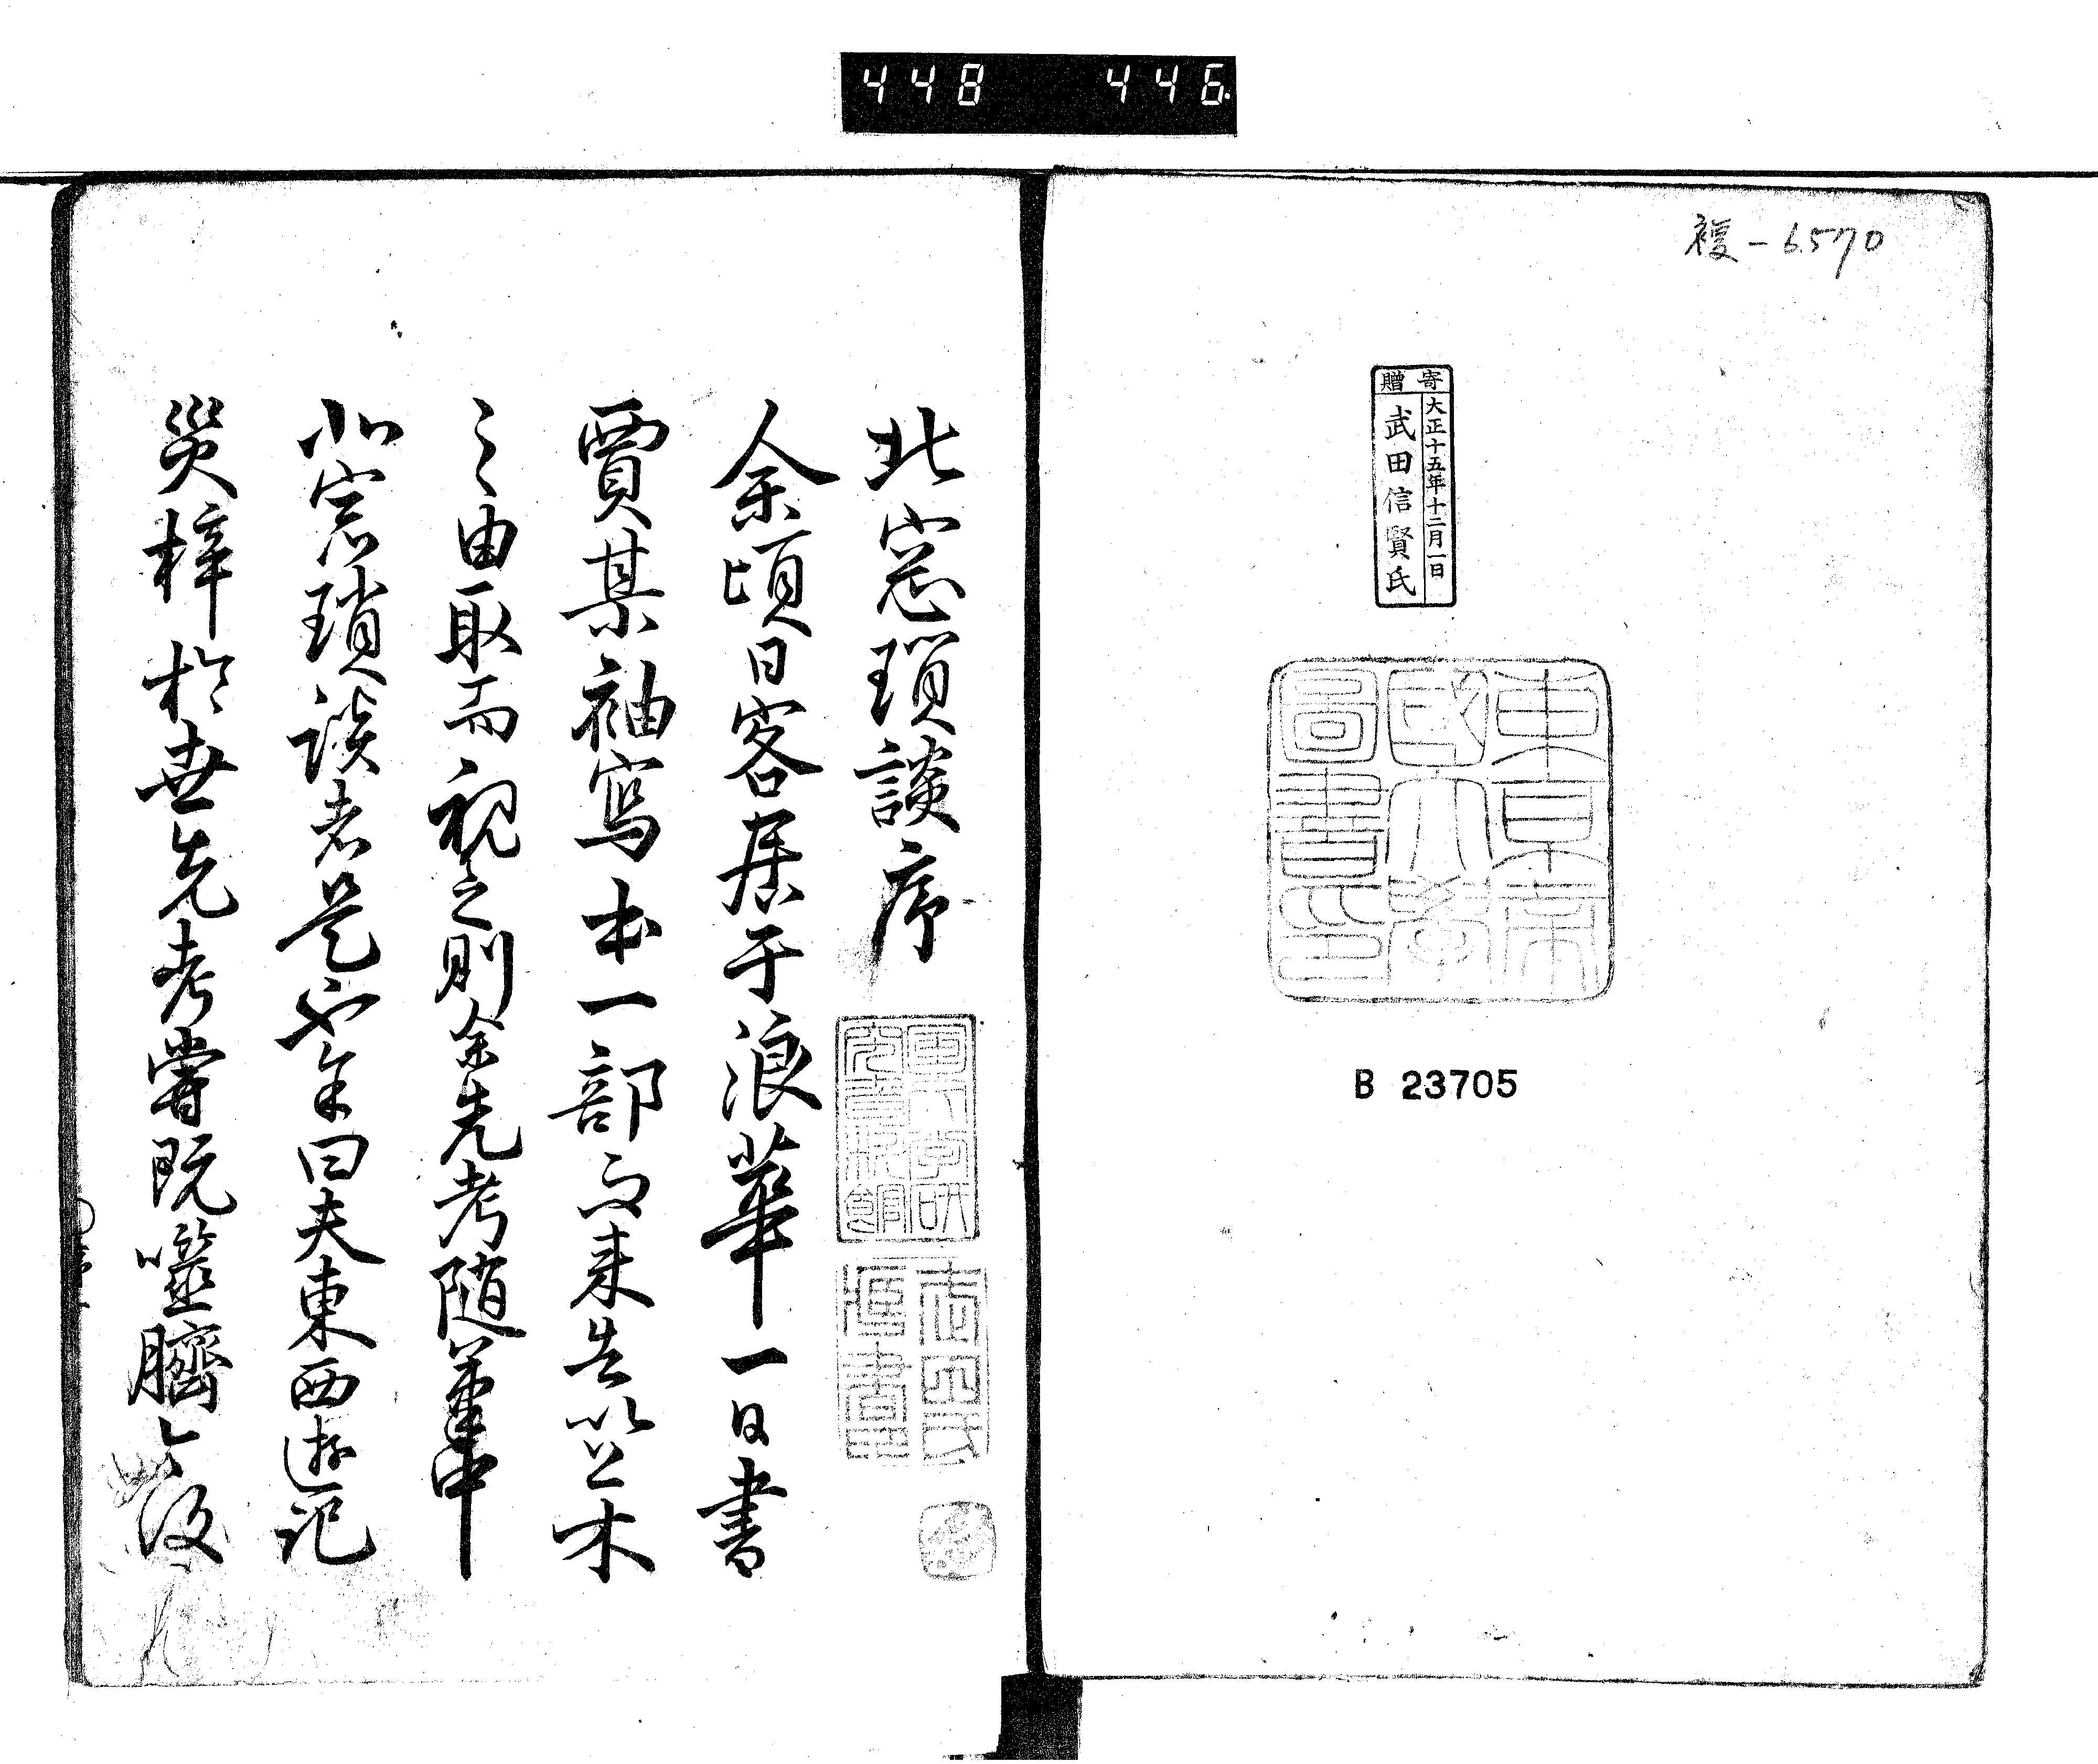 448 446
複-6570
寄贈
大正十五年十二月一日
武田信賢氏
東京帝
國大學
圖書印
B 23705
北窓瑣談序
余頃日客居于浪華一日書
賈某袖寫本一部而来告以上木
之由取而視之則余先考随筆中
北窓瑣談者是也余曰夫東西遊記
災梓於世先考嘗既噬臍今復